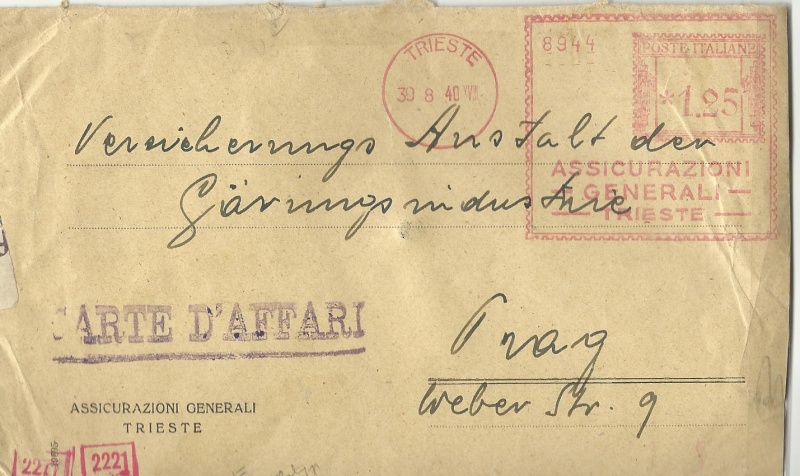 TRIESTE
30 8 40 XVIII
8944
POSTE ITALIANE
*1.25
ASSICURAZIONI
GENERALI
TRIESTE
Versicherungs Anstalt der
Gärungsindustrie
CARTE D'AFFARI
Prag
Weber Str. 9
ASSICURAZIONI GENERALI
TRIESTE
2221
2221